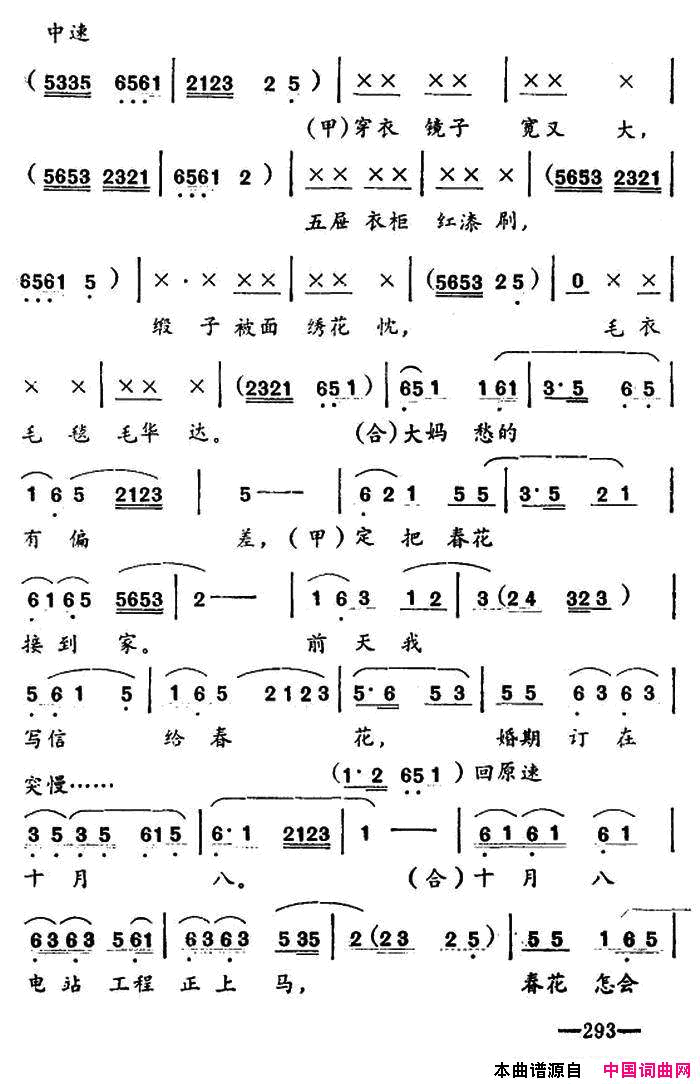 中速
( 5335 6561 | 2123 2 5 ) | ×× ×× | ×× × |
(甲)穿衣 镜子 宽又 大,
( 5653 2321 | 6561 2 ) | ×× ×× | ×× × | (5653 2321 |
五屉 衣柜 红漆 刷,
6561 5 ) | × · × ×× | ×× × | (5653 2 5) | 0 × × |
缎 子 被面 绣花 忱, 毛 衣
× × | ×× × | (2321 651) | 651 161 | 3·5 65 |
毛 毯 毛华 达。 (合)大妈 愁的
1 6 5 2123 | 5 —— | 6 2 1 5 5 | 3·5 2 1 |
有 偏 差, (甲)定 把 春花
6165 5653 | 2 —— | 1 6 3 1 2 | 3 (24 323) |
接到 家。 前 天 我
5 6 1 5 | 1 6 5 2123 | 5·6 5 3 | 5 5 63 63 |
写信 给 春 花, 婚期 订 在
突慢…… (1·2 651) 回原速
35 35 615 | 6·1 2123 | 1 —— | 61 61 61 |
十 月 八。 (合)十 月 八
6363 561 | 6363 535 | 2 (23 25) | 55 165
电 站 工程 正 上 马, 春花 怎会
—293—
本曲谱源自 中国词曲网